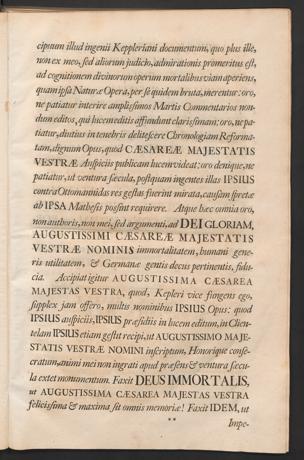 cipuum illud ingenii Keppleriani documentum, quo plus ille,
non ex meo, sed aliorum judicio, admirationis promeritus est,
ad cognitionem divinorum operum mortalibus viam aperiens,
quam ipsa Naturæ Opera, per se quidem bruta, merentur: oro,
ne patiatur interire amplissimos Martis Commentarios non-
dum editos, qui lucem editis affundunt clarissimam: oro, ne pa-
tiatur, diutius in tenebris delitescere Chronologiam Reforma-
tam, dignum Opus, quod CÆSAREÆ MAJESTATIS
VESTRÆ Auspiciis publicam lucem videat: oro denique, ne
patiatur, ut ventura sæcula, postquam ingentes illas IPSIUS
contra Ottomannidas res gestas fuerint mirata, causam spretæ
ab IPSA Mathesis possint requirere. Atque hæc omnia oro,
non authoris, non mei, sed argumenti, ad DEI GLORIAM,
AUGUSTISSIMI CÆSAREÆ MAJESTATIS
VESTRÆ NOMINIS immortalitatem, humani gene-
ris utilitatem, & Germanæ gentis decus pertinentis, fidu-
cia. Accipiat igitur AUGUSTISSIMA CÆSAREA
MAJESTAS VESTRA, quod, Kepleri vice fungens ego,
supplex jam offero, multis nominibus IPSIUS Opus: quod
IPSIUS auspiciis, IPSIUS præsidiis in lucem editum, in Clien-
telam IPSIUS etiam gestit recipi, ut AUGUSTISSIMO MAJE-
STATIS VESTRÆ NOMINI inscriptum, Honorique conse-
cratum, animi mei non ingrati apud præsens & ventura sæcu-
la extet monumentum. Faxit DEUS IMMORTALIS,
ut AUGUSTISSIMA CÆSAREA MAJESTAS VESTRA
felicissima & maxima sit omnis memoriæ! Faxit IDEM, ut
** Impe-